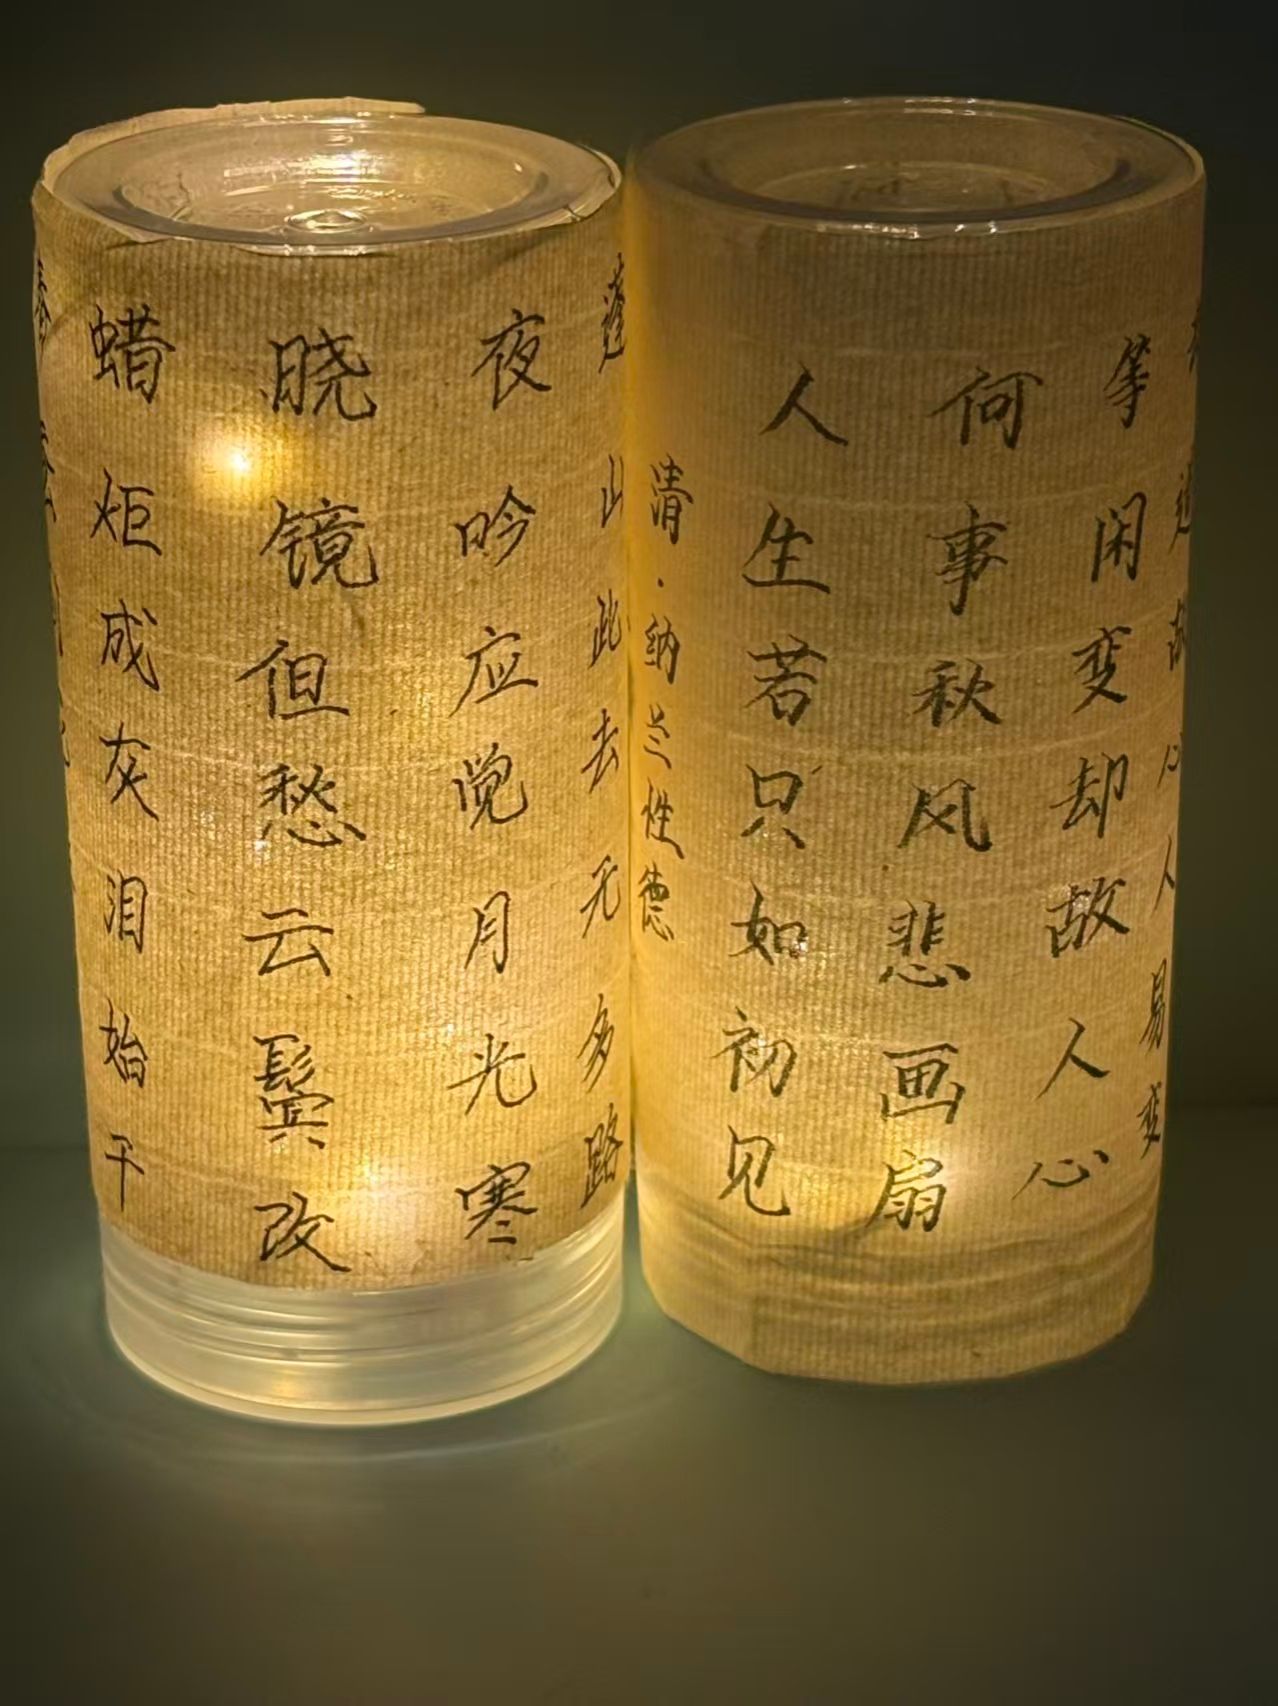 蜡炬成灰泪始干
晓镜但愁云鬓改
夜吟应觉月光寒
蓬山此去无多路
清·纳兰性德
人生若只如初见
何事秋风悲画扇
等闲变却故人心
道故心人易变